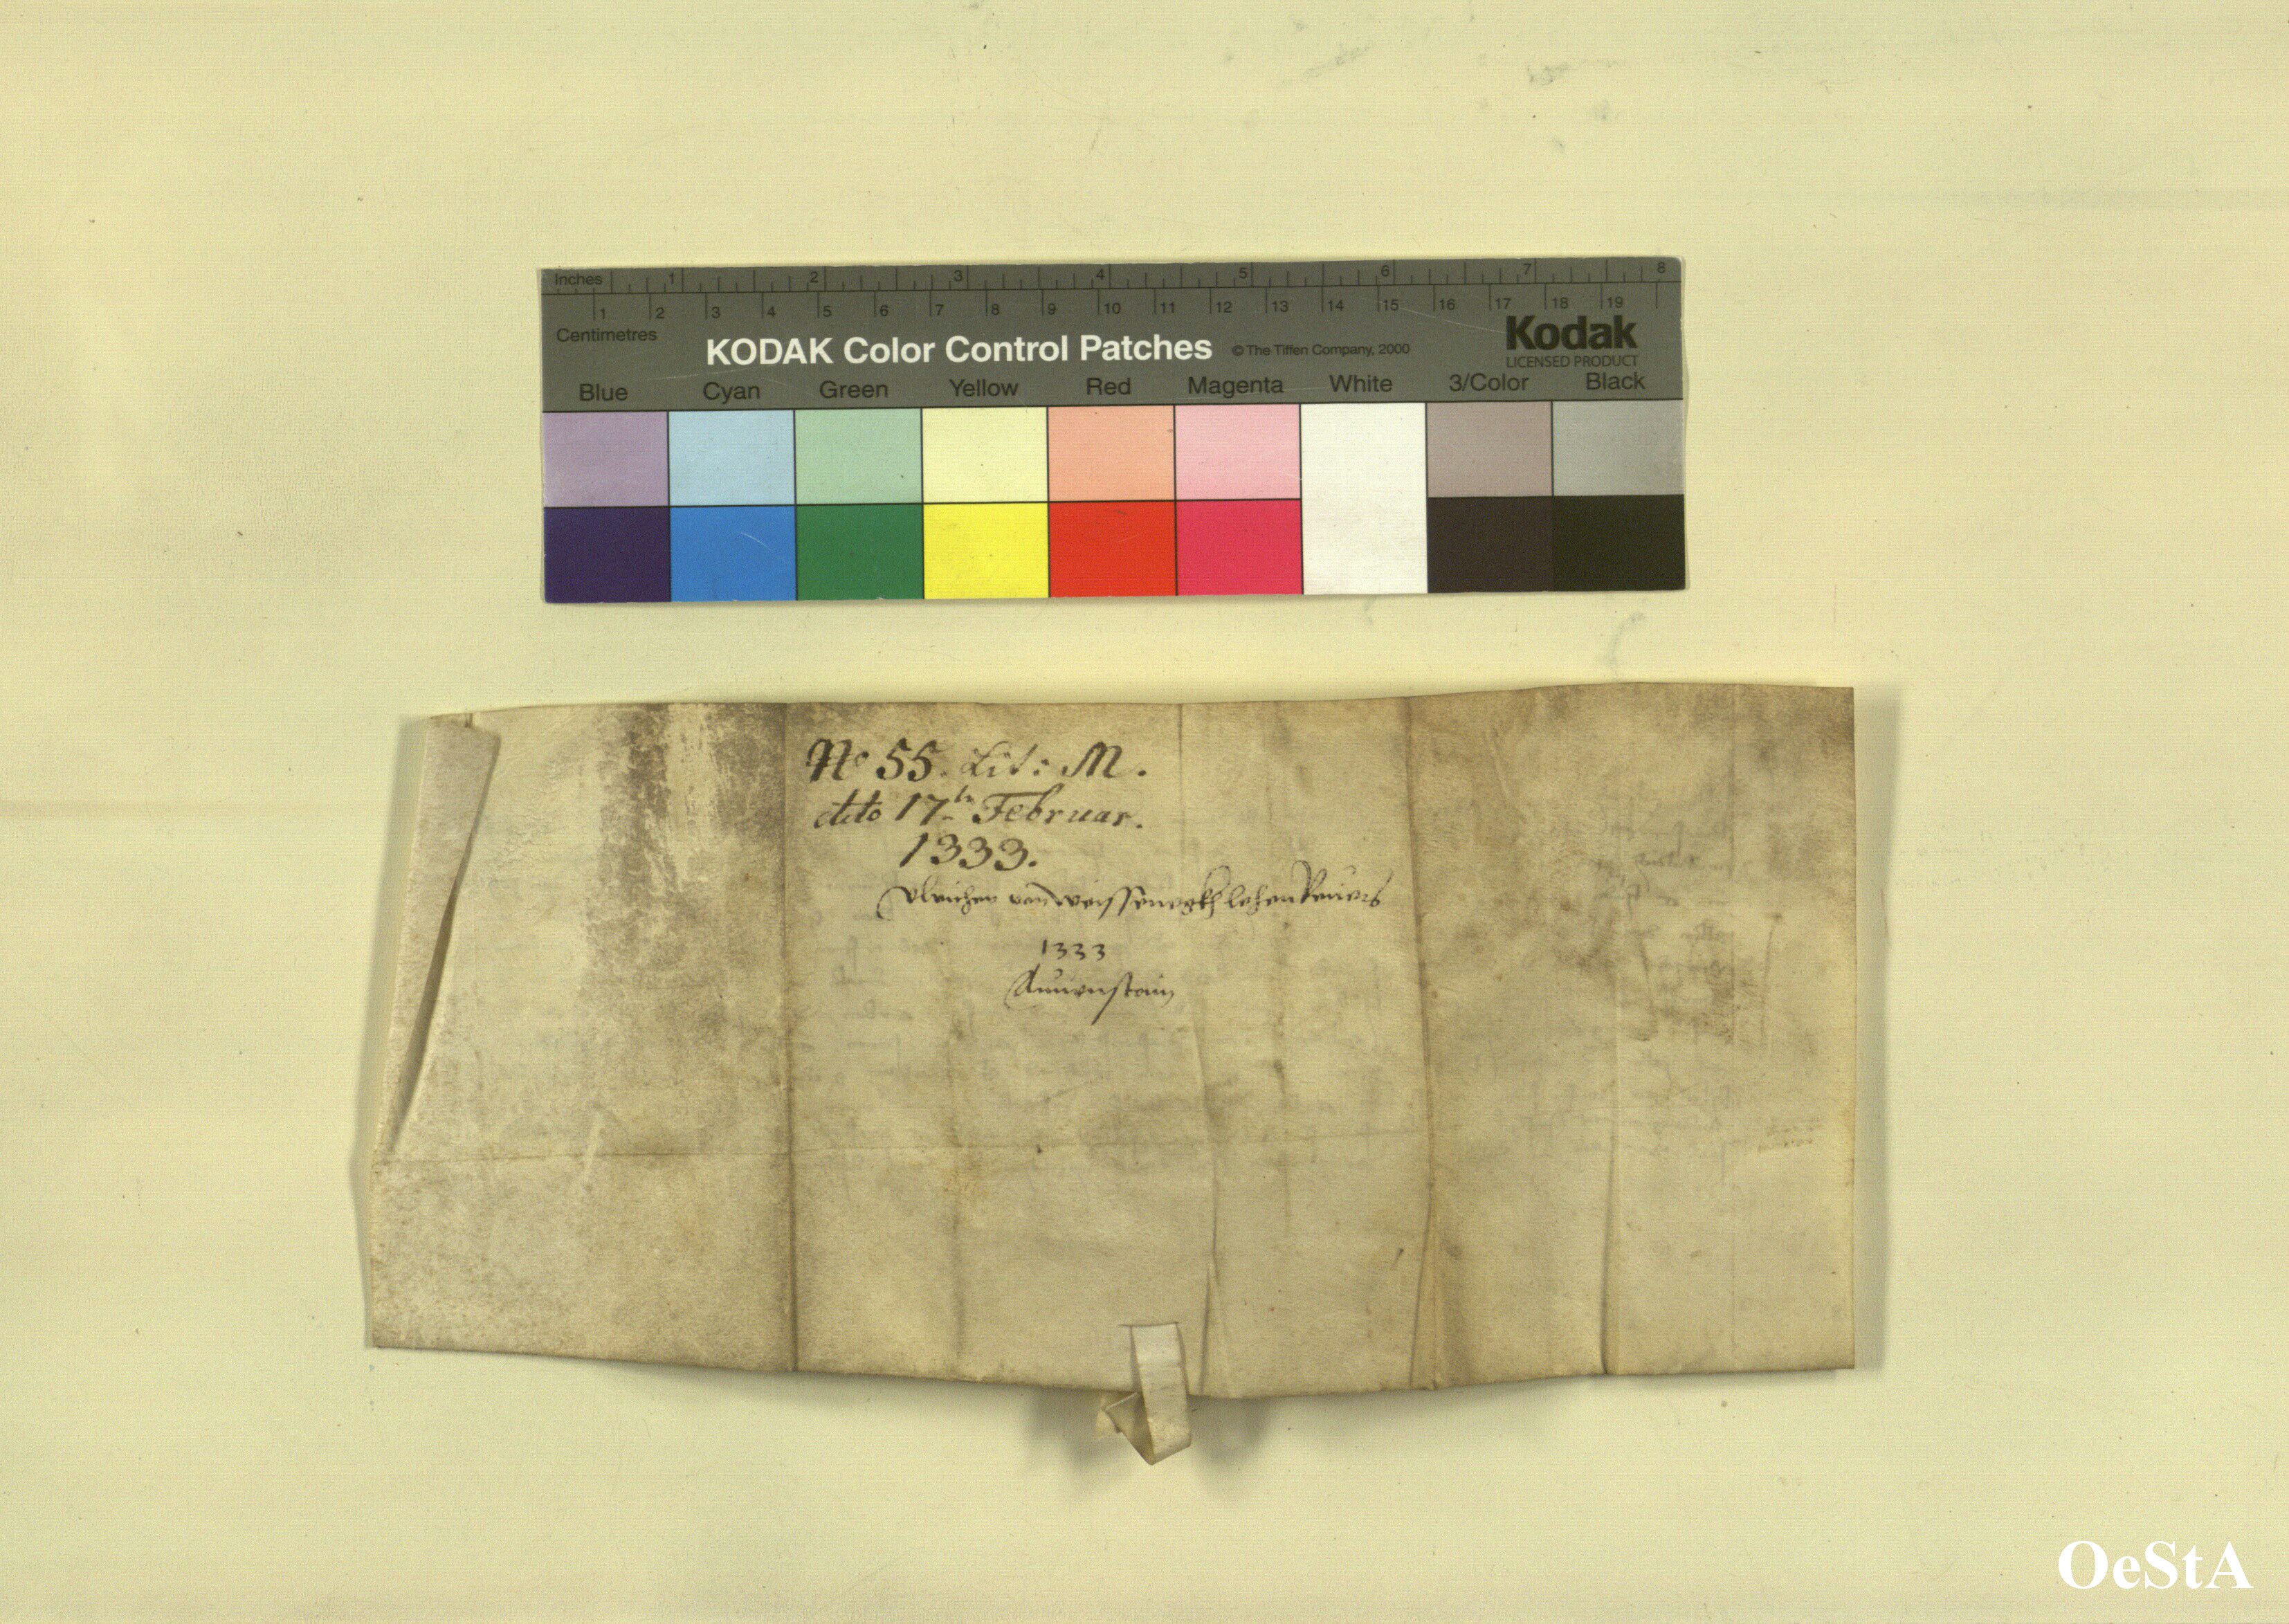 Inches 1 2 3 4 5 6 7 8
1 2 3 4 5 6 7 8 9 10 11 12 13 14 15 16 17 18 19
Centimetres
KODAK Color Control Patches © The Tiffen Company, 2000 Kodak
LICENSED PRODUCT
Blue Cyan Green Yellow Red Magenta White 3/Color Black
No 55. Lit: M.
ddto 17tn Februar.
1333.
Vlrichen von weissenegkh lehen Reuers
1333
OeStA